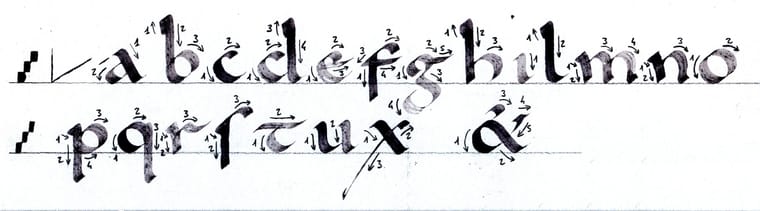 a b c d e f g h i l m n o
p q r ſ t u x &